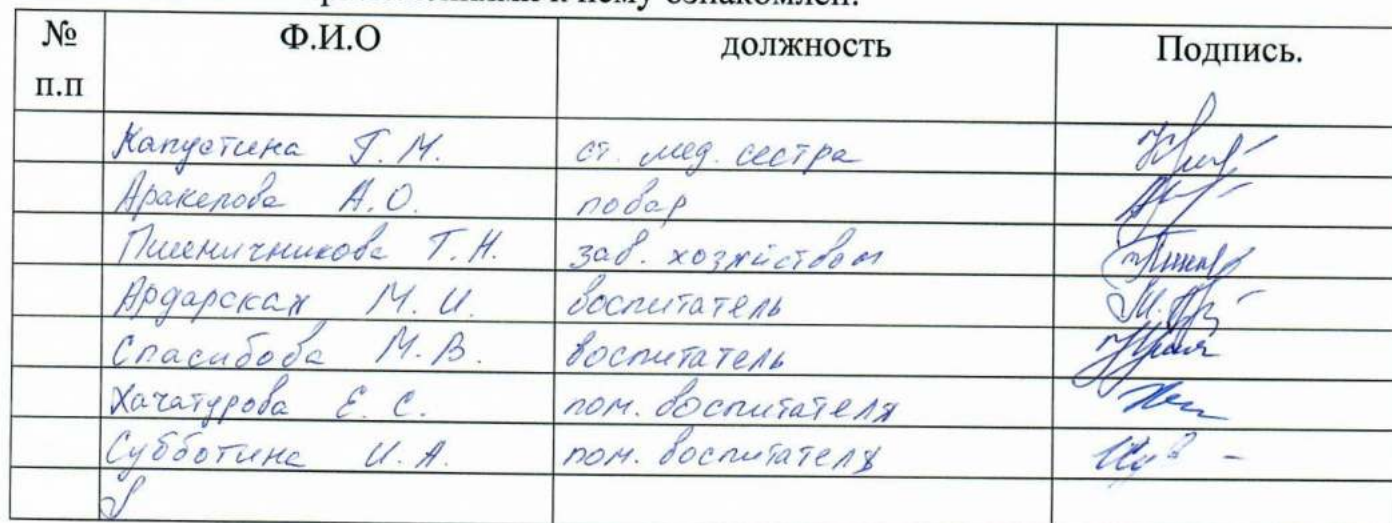 к нему ознакомлен:
№ п.п Ф.И.О должность Подпись.
Капустина Г. М. ст. мед. сестра
Аракелова А.О. повар
Пшеничникова Т.Н. зав. хозяйством
Ардарская М.И. воспитатель
Спасибова М.В. воспитатель
Хачатурова Е.С. пом. воспитателя
Субботина И.А. пом. воспитателя